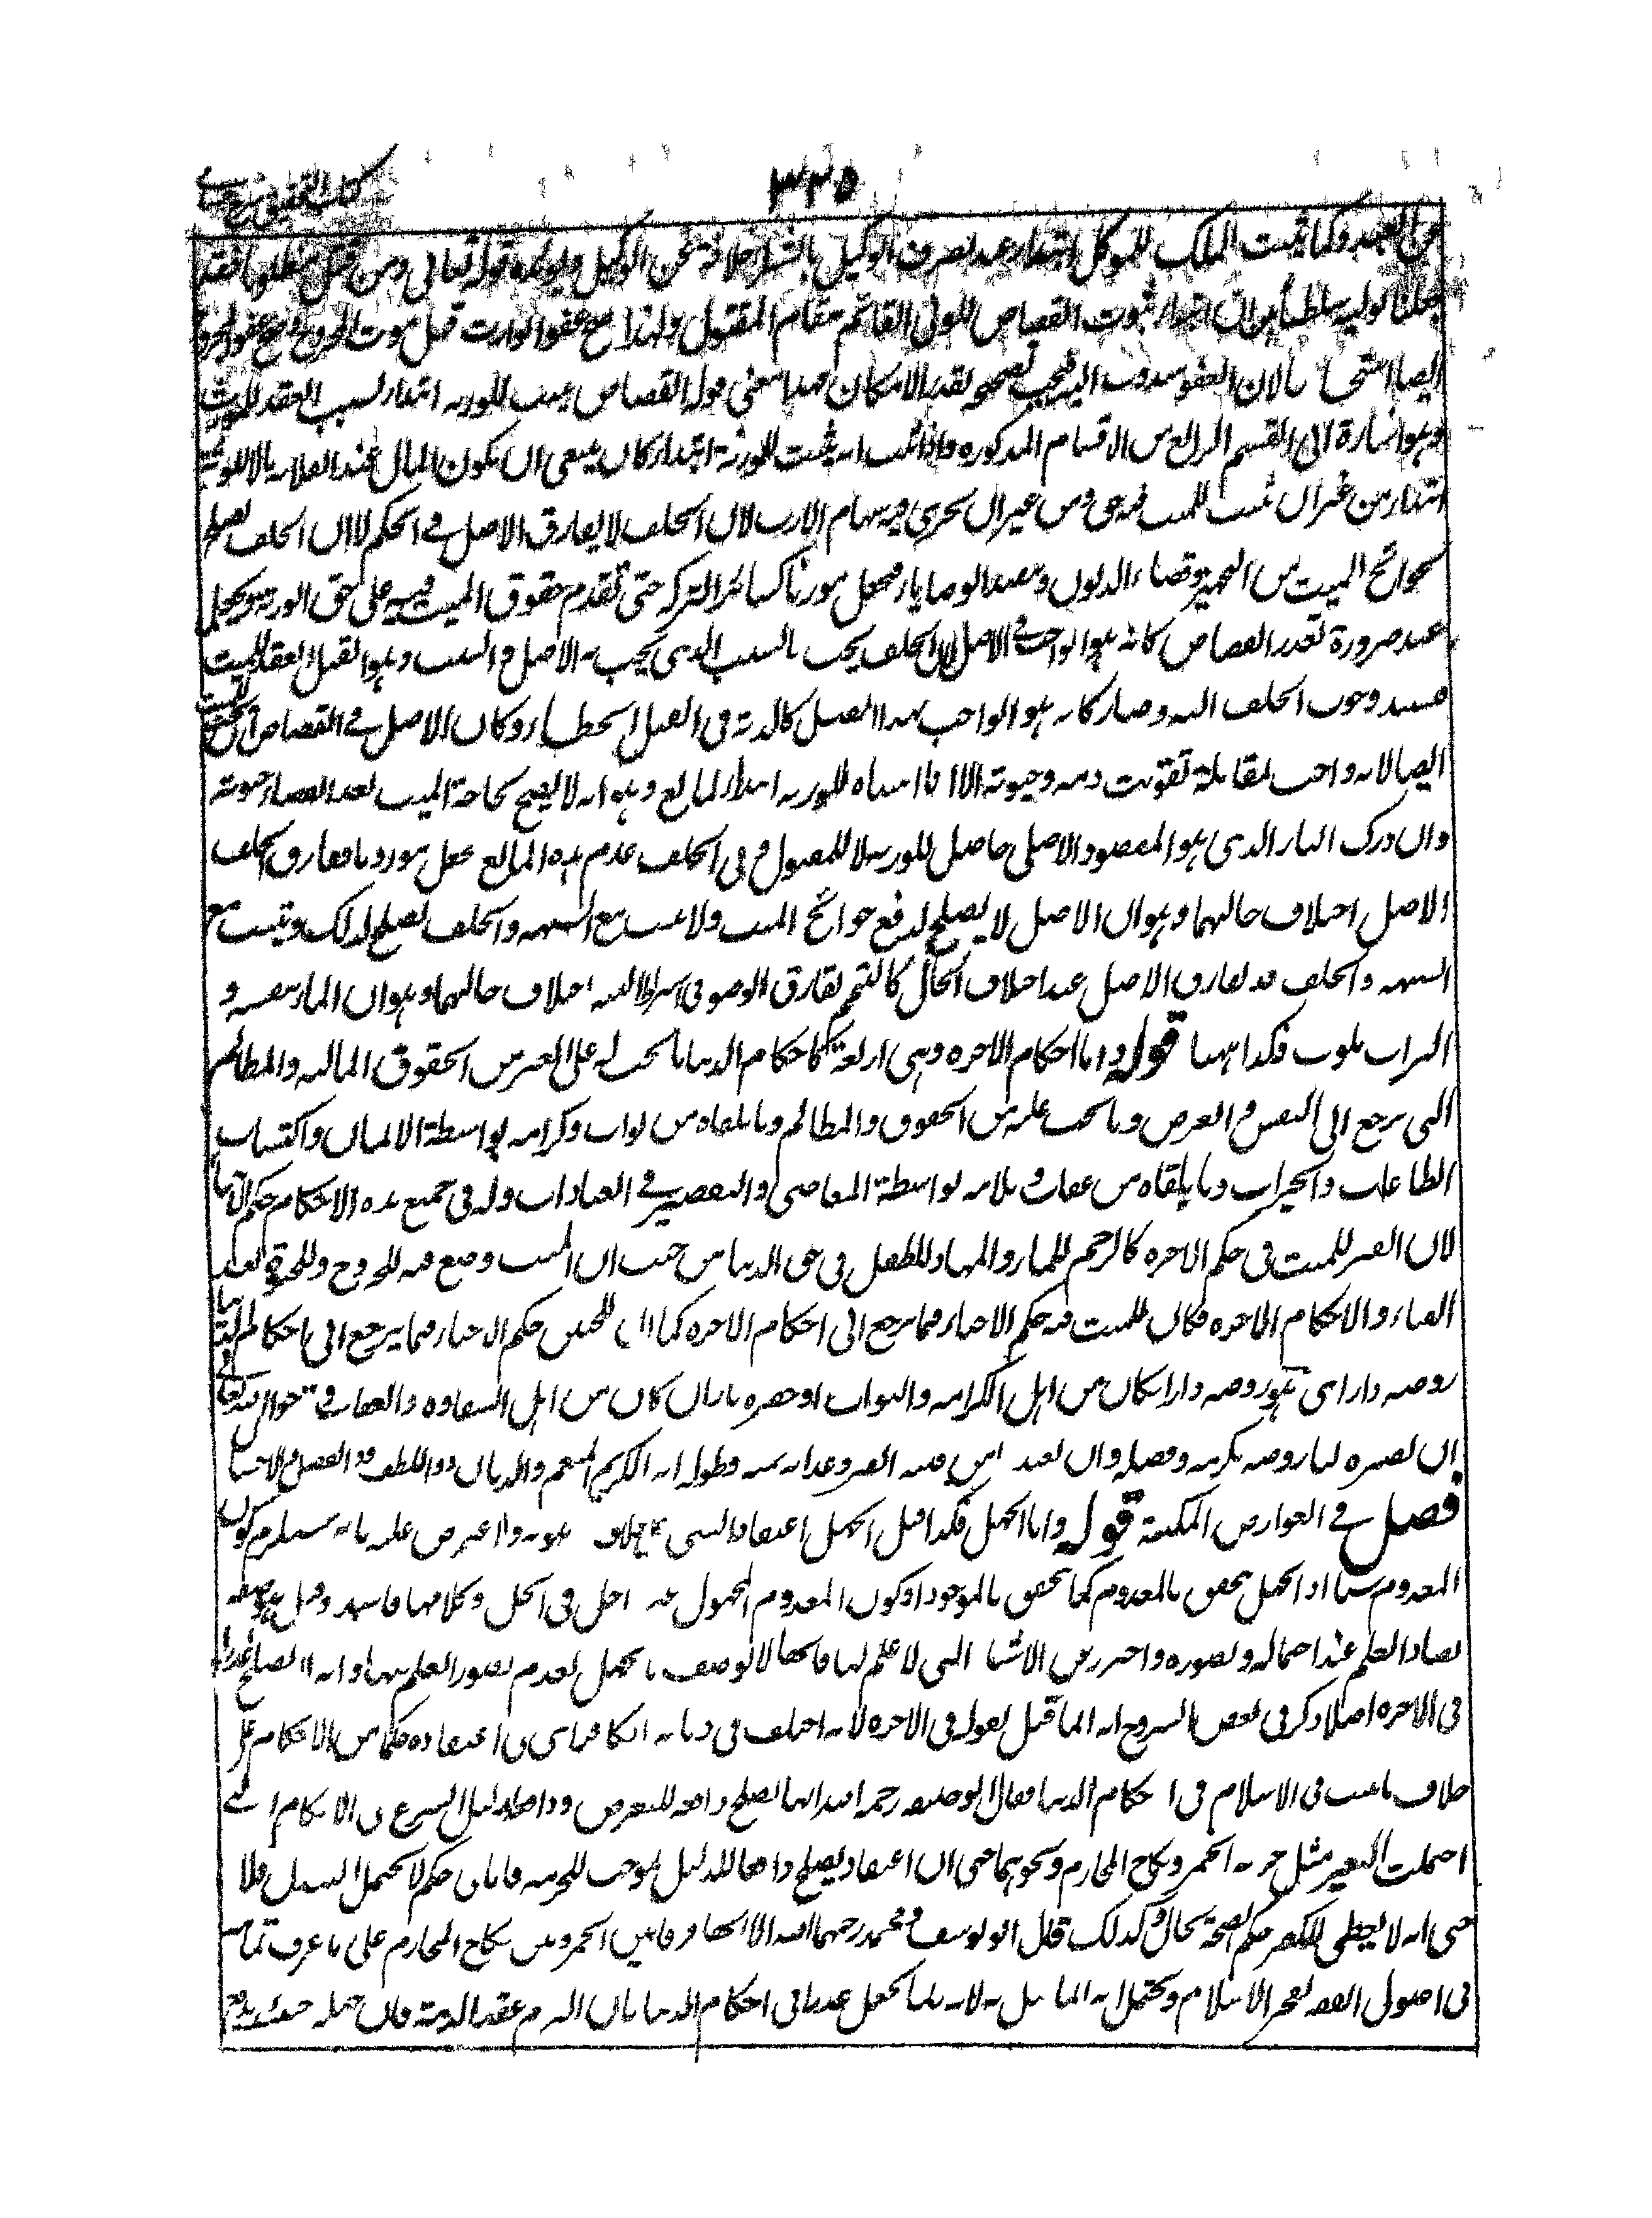 ٣٢٥
كتاب التحقيق شرح حسامى
عن العبد وكما يثبت الملك للموكل ابتداء عند تصرف الوكيل بالشراء خلافة عن الوكيل ويؤيده قوله تعالى ومن قتل مظلوما فقد
جعلنا لوليه سلطانا بين ان ابتداء ثبوت القصاص للولي القائم مقام المقتول ولهذا صح عفو الوارث قبل موت المجروح وصح عفو المجروح
ايضا استحسانا لان العفو مندوب اليه فيجب تصحيحه بقدر الامكان هذا معنى قوله القصاص يثبت للورثة ابتداء لسبب انعقد للمورث
وهو اشارة الى القسم الرابع من الاقسام المذكورة واذا ثبت انه يثبت للورثة ابتداء كان ينبغي ان يكون المال عند انقلابه مالا للورثة
ابتداء من غير ان يثبت للميت فيه حق ومن غير ان يجرى فيه سهام الارث لان الخلف لا يفارق الاصل في الحكم الا ان الخلف يصلح
لحوائج الميت من التجهيز وقضاء الديون وتنفيذ الوصايا فجعل موروثا كسائر التركة حتى تقدم حقوق الميت فيه على حق الورثة ويجعل
عند ضرورة تعذر القصاص كانه هو الواجب في الاصل لان الخلف يجب بالسبب الذي يجب به الاصل والسبب وهو القتل انعقد للميت
فيستند وجوب الخلف اليه وصار كانه هو الواجب بهذا القتل كالدية في القتل الخطاء وكان الاصل في القصاص ان يثبت للميت
ايضا لانه واجب بمقابلة تفويت دمه وحيوته الا انا اثبتناه للورثة ابتداء لمانع وهو انه لا يصلح لحاجة الميت بعد انقضاء حيوته
وان درك الثار الذي هو المقصود الاصلي حاصل للورثة لا للمقتول وفي الخلف عدم هذه الموانع فجعل موروثا ففارق الخلف
الاصل لاختلاف حالهما وهو ان الاصل لا يصلح لدفع حوائج الميت ولا يثبت مع الشبهة والخلف يصلح لذلك ويثبت مع
الشبهة والخلف قد يفارق الاصل عند اختلاف الحال كالتيمم يفارق الوضوء في اشتراط النية لاختلاف حالهما وهو ان الماء بنفسه و
التراب ملوث فكذا ههنا قوله واما احكام الاخرة وهي اربعة كاحكام الدنيا ما يجب له على الغير من الحقوق المالية والمظالم
التي ترجع الى النفس والعرض وما يجب عليه من الحقوق والمظالم وما يلقاه من ثواب وكرامة بواسطة الايمان واكتساب
الطاعات والخيرات وما يلقاه من عقاب وملامة بواسطة المعاصي والتقصير في العبادات وله في جميع هذه الاحكام حكم الاحياء
لان القبر للميت في حكم الاخرة كالرحم للماء والمهاد للطفل في حق الدنيا من حيث ان الميت وضع فيه للخروج وللحيوة بعد
الفناء ولاحكام الاخرة فكان للميت فيه حكم الاحياء فيما يرجع الى احكام الاخرة كما ان للجنين حكم الاحياء فيما يرجع الى احكام الدنيا
روضة دار اى هو روضة دار ان كان من اهل الكرامة والثواب او حفرة نار ان كان من اهل الشقاوة والعقاب
ان يصيره لنا روضة بكرمه وفضله وان يعيذنا من فتنة القبر وعذابه بمنه وطوله انه الكريم المنعم والديان ذو اللطف والفضل والاحسان
فصل في العوارض المكتسبة قوله واما الجهل فكذا قيل الجهل اعتقاد الشيء على خلاف ما هو به واعترض عليه بانه يستلزم كون
المعدوم شيئا اذ الجهل يتحقق بالمعدوم كما يتحقق بالموجود او كون المعدوم المجهول غير داخل في الحد وكلاهما فاسد وقيل هو صفة
تضاد العلم عند احتماله وتصوره واحترز عن الاشياء التي لا علم لها فانها لا توصف بالجهل لعدم تصور العلم فيها وانه لا يصلح عذرا
في الاخرة اصلا وذكر في بعض الشروح انه انما قيل بقوله في الاخرة لانه اختلف في ديانة الكافر اى في اعتقاده حكما من الاحكام على
خلاف ما ثبت في الاسلام في احكام الدنيا فقال ابو حنيفة رحمه الله انها تصلح دافعة للتعرض ودافعة لدليل الشرع في الاحكام التي
احتملت التغيير مثل حرمة الخمر ونكاح المحارم ونحوهما حتى ان اعتقاده يصلح دافعا للدليل الموجب للحرمة فاما في حكم لا يحتمل التبدل فلا
حتى انه لا يعطى للكفر حكم الصحة بحال وكذلك قال ابو يوسف ومحمد رحمهما الله الا انهما فرقا بين الخمر وبين نكاح المحارم على ما عرف تمامه
في اصول الفقه لفخر الاسلام ويحتمل انه انما قيل به لانه ربما يجعل عذرا في احكام الدنيا بان التزم عقد الذمة فان جهله حينئذ يدفع